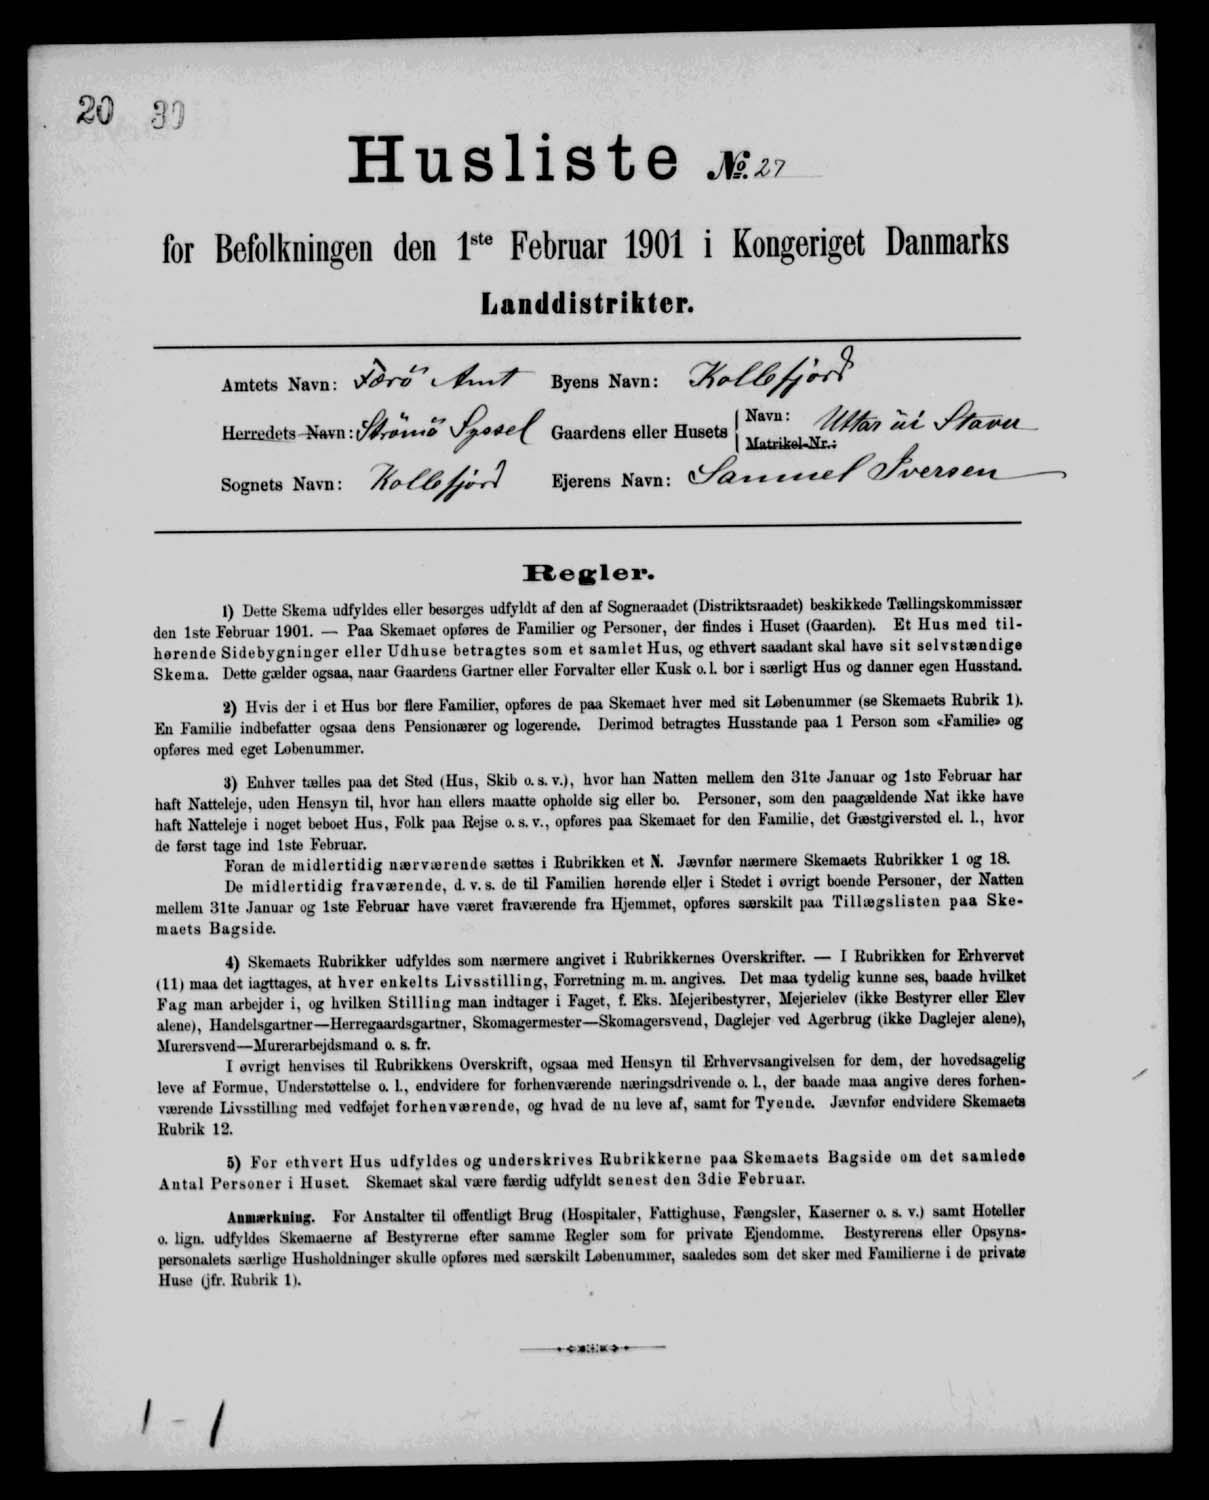 20 30
Husliste No. 27
for Befolkningen den 1ste Februar 1901 i Kongeriget Danmarks
Landdistrikter.
Amtets Navn: Færö Amt Byens Navn: Kollefjord
Herredets Navn: Strömö Syssel Gaardens eller Husets Navn: Uttar úi Stovu
Matrikel-Nr.:
Sognets Navn: Kollefjord Ejerens Navn: Samuel Iversen
Regler.
1) Dette Skema udfyldes eller besørges udfyldt af den af Sogneraadet (Distriktsraadet) beskikkede Tællingskommissær
den 1ste Februar 1901. — Paa Skemaet opføres de Familier og Personer, der findes i Huset (Gaarden). Et Hus med til-
hørende Sidebygninger eller Udhuse betragtes som et samlet Hus, og ethvert saadant skal have sit selvstændige
Skema. Dette gælder ogsaa, naar Gaardens Gartner eller Forvalter eller Kusk o. l. bor i særligt Hus og danner egen Husstand.
2) Hvis der i et Hus bor flere Familier, opføres de paa Skemaet hver med sit Løbenummer (se Skemaets Rubrik 1).
En Familie indbefatter ogsaa dens Pensionærer og logerende. Derimod betragtes Husstande paa 1 Person som «Familie» og
opføres med eget Løbenummer.
3) Enhver tælles paa det Sted (Hus, Skib o. s. v.), hvor han Natten mellem den 31te Januar og 1ste Februar har
haft Natteleje, uden Hensyn til, hvor han ellers maatte opholde sig eller bo. Personer, som den paagældende Nat ikke have
haft Natteleje i noget beboet Hus, Folk paa Rejse o. s. v., opføres paa Skemaet for den Familie, det Gæstgiversted el. l., hvor
de først tage ind 1ste Februar.
Foran de midlertidig nærværende sættes i Rubrikken et N. Jævnfør nærmere Skemaets Rubrikker 1 og 18.
De midlertidig fraværende, d. v. s. de til Familien hørende eller i Stedet i øvrigt boende Personer, der Natten
mellem 31te Januar og 1ste Februar have været fraværende fra Hjemmet, opføres særskilt paa Tillægslisten paa Ske-
maets Bagside.
4) Skemaets Rubrikker udfyldes som nærmere angivet i Rubrikkernes Overskrifter. — I Rubrikken for Erhvervet
(11) maa det iagttages, at hver enkelts Livsstilling, Forretning m. m. angives. Det maa tydelig kunne ses, baade hvilket
Fag man arbejder i, og hvilken Stilling man indtager i Faget, f. Eks. Mejeribestyrer, Mejerielev (ikke Bestyrer eller Elev
alene), Handelsgartner—Herregaardsgartner, Skomagermester—Skomagersvend, Daglejer ved Agerbrug (ikke Daglejer alene),
Murersvend—Murerarbejdsmand o. s. fr.
I øvrigt henvises til Rubrikkens Overskrift, ogsaa med Hensyn til Erhvervsangivelsen for dem, der hovedsagelig
leve af Formue, Understøttelse o. l., endvidere for forhenværende næringsdrivende o. l., der baade maa angive deres forhen-
værende Livsstilling med vedføjet forhenværende, og hvad de nu leve af, samt for Tyende. Jævnfør endvidere Skemaets
Rubrik 12.
5) For ethvert Hus udfyldes og underskrives Rubrikkerne paa Skemaets Bagside om det samlede
Antal Personer i Huset. Skemaet skal være færdig udfyldt senest den 3die Februar.
Anmærkning. For Anstalter til offentligt Brug (Hospitaler, Fattighuse, Fængsler, Kaserner o. s. v.) samt Hoteller
o. lign. udfyldes Skemaerne af Bestyrerne efter samme Regler som for private Ejendomme. Bestyrerens eller Opsyns-
personalets særlige Husholdninger skulle opføres med særskilt Løbenummer, saaledes som det sker med Familierne i de private
Huse (jfr. Rubrik 1).
1 - 1